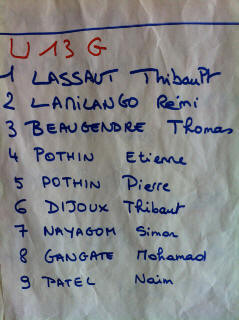 U 13 G
1 LASSAUT Thibault
2 LAMILANGO Rémi
3 BEAUGENDRE Thomas
4 POTHIN Etienne
5 POTHIN Pierre
6 DIJOUX Thibaut
7 NAYAGOM Simon
8 GANGATE Mohamad
9 PATEL Naïm